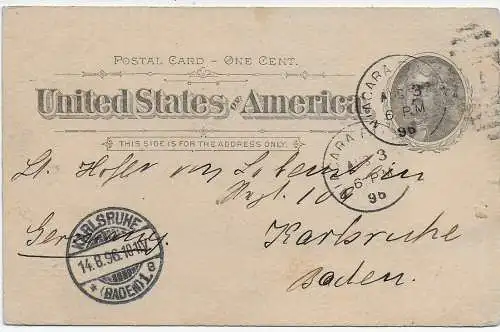 POSTAL CARD – ONE CENT.
United States OF America
THIS SIDE IS FOR THE ADDRESS ONLY.
NIAGARA
3
6 PM
96
NIAGARA
AUG 3
6 PM
96
Lt. Hofer von
Regt.
Karlsruhe
Baden.
Germany
KARLSRUHE
14.8.96.
* (BADEN) 1. e